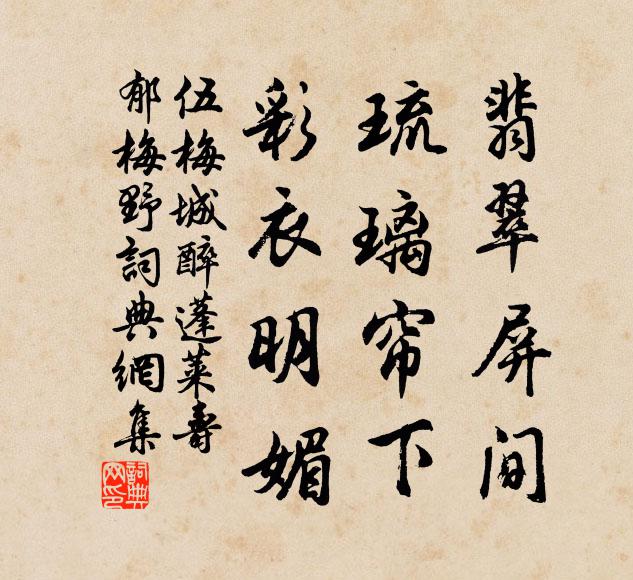 翡翠屏间
琉璃帘下
彩衣明媚
伍梅城醉蓬莱寿
郁梅野詞典網集
詞典网印